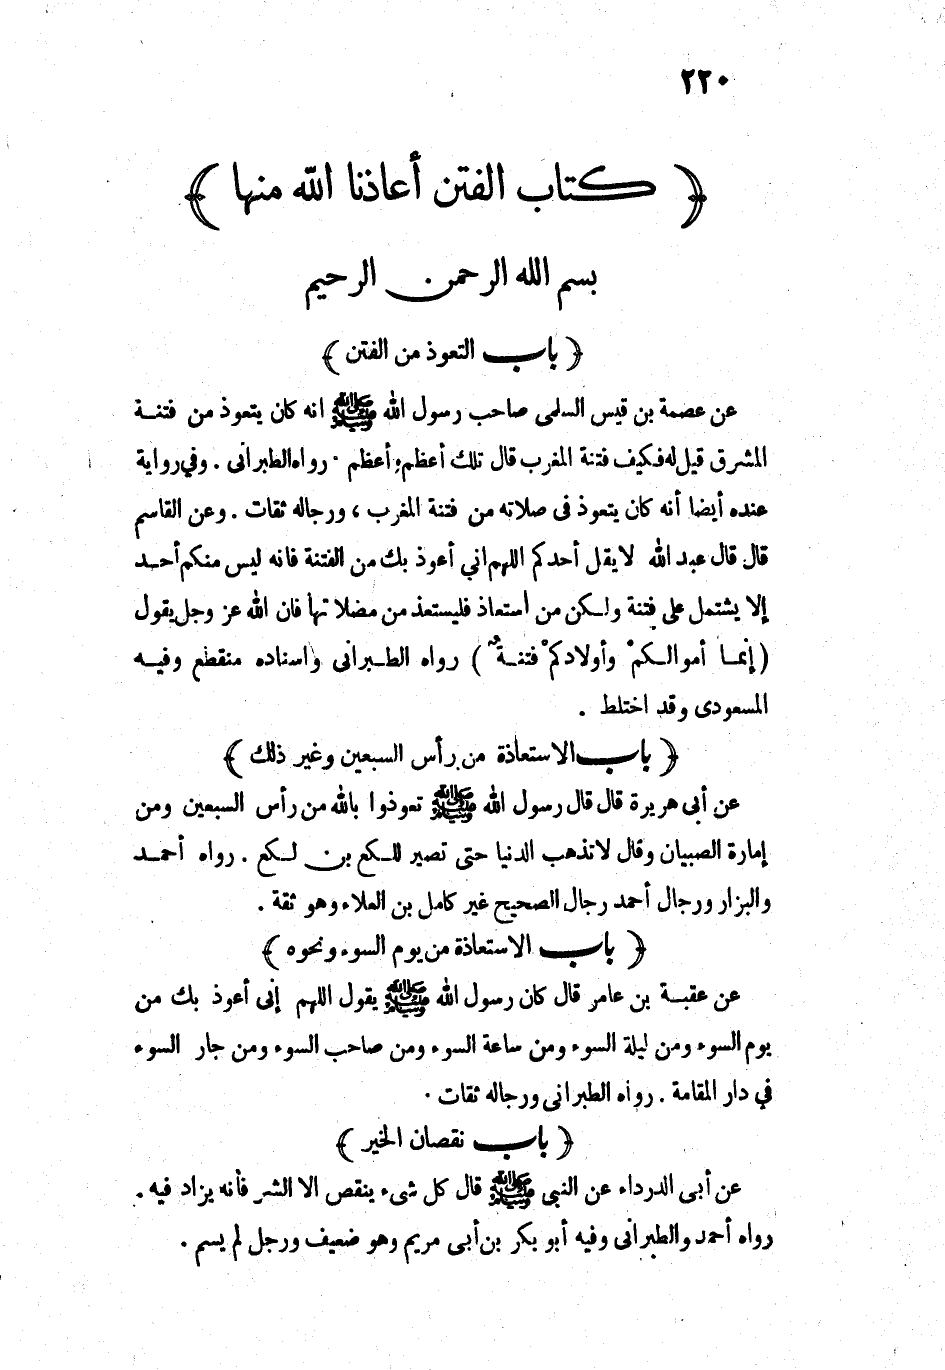 ٢٢٠
﴿ كتاب الفتن أعاذنا الله منها ﴾
بسم الله الرحمن الرحيم
﴿ باب التعوذ من الفتن ﴾
عن عصمة بن قيس السلمى صاحب رسول الله ﷺ انه كان يتعوذ من فتنة
المشرق قيل له فكيف فتنة المغرب قال تلك أعظم وأعظم . رواه الطبرانى . وفي رواية
عنده أيضا أنه كان يتعوذ فى صلاته من فتنة المغرب ، ورجاله ثقات . وعن القاسم
قال قال عبد الله لا يقل أحدكم اللهم اني أعوذ بك من الفتنة فانه ليس منكم أحد
إلا يشتمل على فتنة ولكن من أستعاذ فليستعذ من مضلاتها فان الله عز وجل يقول
( إنما أموالكمْ وأولادكمْ فتنةٌ ) رواه الطبرانى واسناده منقطع وفيه
المسعودى وقد اختلط .
﴿ باب الاستعاذة من رأس السبعين وغير ذلك ﴾
عن أبى هريرة قال قال رسول الله ﷺ تعوذوا بالله من رأس السبعين ومن
إمارة الصبيان وقال لا تذهب الدنيا حتى تصير للكع بن لكع . رواه أحمد
والبزار ورجال أحمد رجال الصحيح غير كامل بن العلاء وهو ثقة .
﴿ باب الاستعاذة من يوم السوء ونحوه ﴾
عن عقبة بن عامر قال كان رسول الله ﷺ يقول اللهم إنى أعوذ بك من
يوم السوء ومن ليلة السوء ومن ساعة السوء ومن صاحب السوء ومن جار السوء
في دار المقامة . رواه الطبرانى ورجاله ثقات .
﴿ باب نقصان الخير ﴾
عن أبى الدرداء عن النبى ﷺ قال كل شىء ينقص الا الشر فأنه يزاد فيه .
رواه أحمد والطبرانى وفيه أبو بكر بن أبى مريم وهو ضعيف ورجل لم يسم .